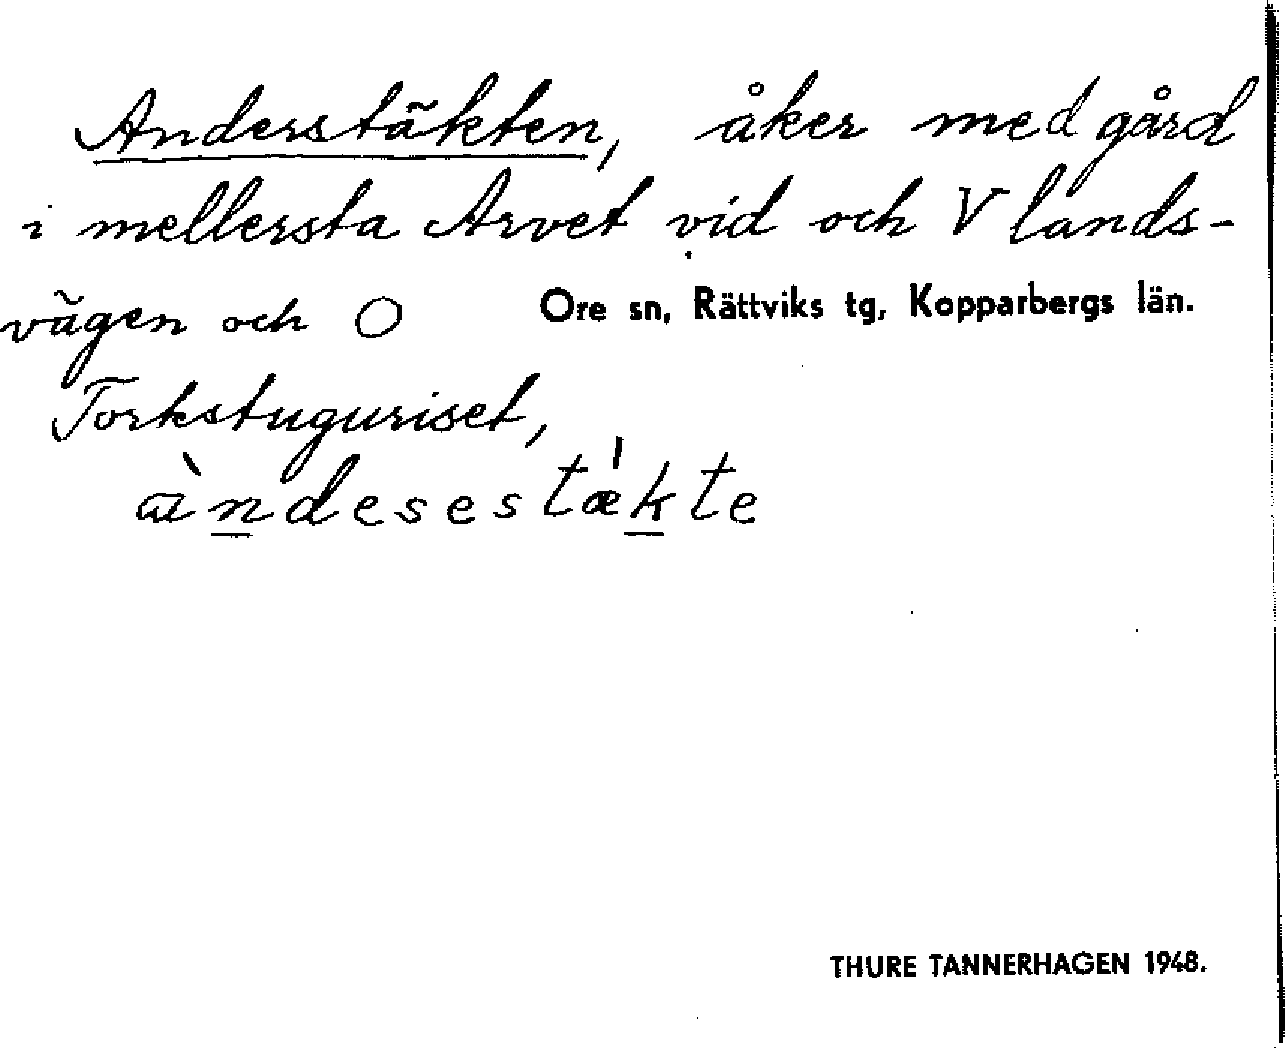 Anderstäkten, åker med gård
i mellersta Arvet vid och V lands-
vägen och O Ore sn, Rättviks tg, Kopparbergs län.
Torkstuguriset,
àndesestǽkte
THURE TANNERHAGEN 1948.